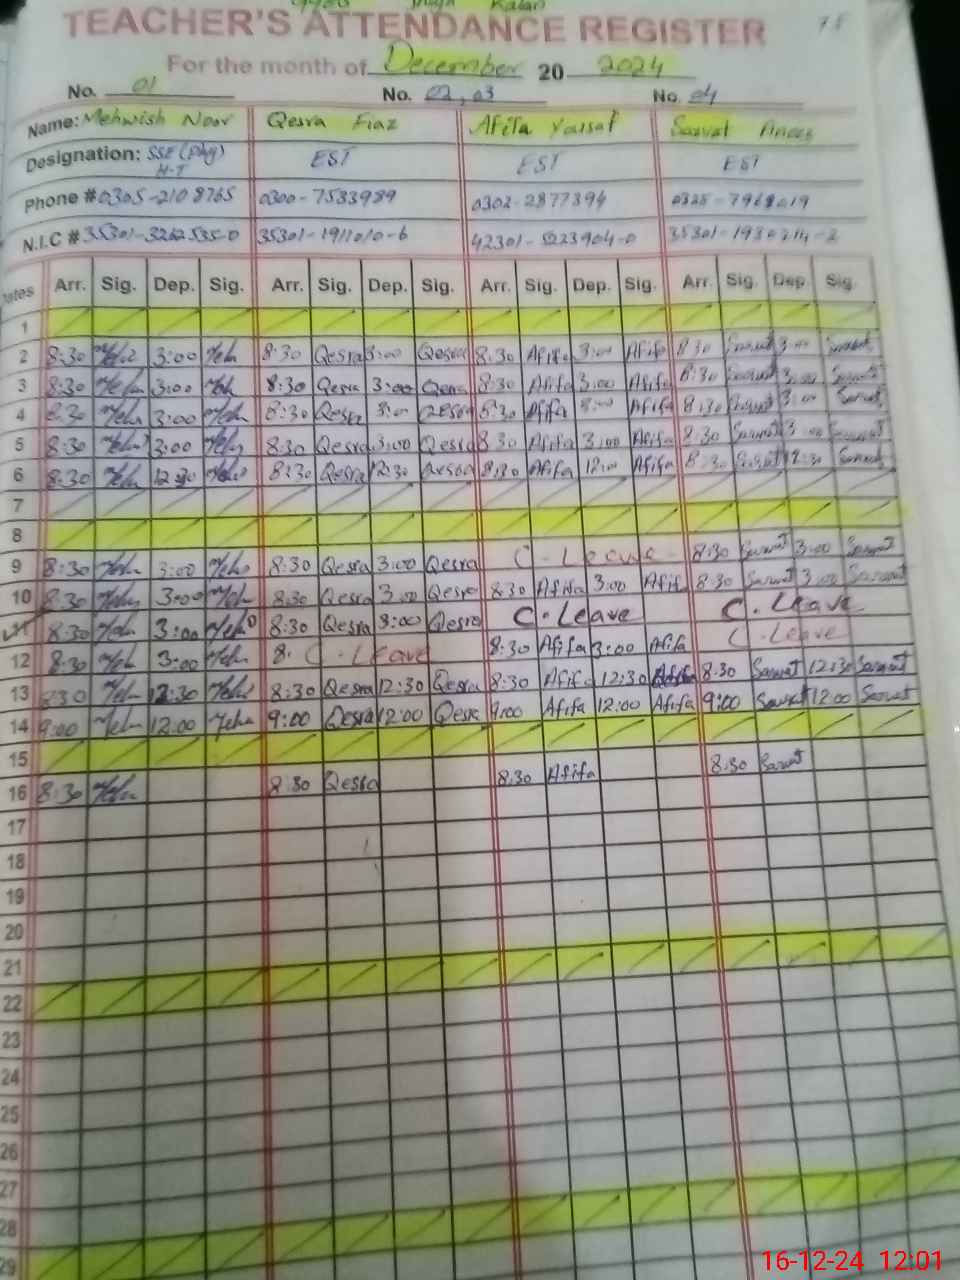 Kalan
TEACHER'S ATTENDANCE REGISTER
For the month of December 20 2024
No. 01 No. 02, 03 No. 04
Name: Mehwish Noor Qesra Fiaz Afifa Yousaf Sarwat
Designation: SSE (Phy) H-T EST EST EST
Phone # 0305-2108765 0300-7583989 0302-2877394
N.I.C #
Dates Arr. Sig. Dep. Sig. Arr. Sig. Dep. Sig. Arr. Sig. Dep. Sig. Arr. Sig. Dep. Sig.
1
2 8:30 Meh 3:00 Meh 8:30 Qesra 3:00 Qesra 8:30 Afifa 3:00 Afifa 8:30 Sarwat 3:00 Sarwat
3 8:30 Meh 3:00 Meh 8:30 Qesra 3:00 Qesra 8:30 Afifa 3:00 Afifa 8:30 Sarwat 3:00 Sarwat
4 8:30 Meh 3:00 Meh 8:30 Qesra 3:00 Qesra 8:30 Afifa 3:00 Afifa 8:30 Sarwat 3:00 Sarwat
5 8:30 Meh 3:00 Meh 8:30 Qesra 3:00 Qesra 8:30 Afifa 3:00 Afifa 8:30 Sarwat 3:00 Sarwat
6 8:30 Meh 12:30 Meh 8:30 Qesra 12:30 Qesra 8:30 Afifa Afifa 8:30 Sarwat 12:30 Sarwat
7
8
9 8:30 Meh 3:00 Meh 8:30 Qesra 3:00 Qesra C-Leave 8:30 Sarwat 3:00 Sarwat
10 8:30 Meh 3:00 Meh 8:30 Qesra 3:00 Qesra 8:30 Afifa 3:00 Afifa 8:30 Sarwat 3:00 Sarwat
11 8:30 Meh 3:00 Meh 8:30 Qesra 3:00 Qesra C.Leave C.Leave
12 8:30 Meh 3:00 Meh 8: C-Leave 8:30 Afifa 3:00 Afifa C-Leave
13 8:30 Meh 12:30 Meh 8:30 Qesra 12:30 Qesra 8:30 Afifa 12:30 Afifa 8:30 Sarwat 12:30 Sarwat
14 9:00 Meh 12:00 Meh 9:00 Qesra 12:00 Qesra 9:00 Afifa 12:00 Afifa 9:00 Sarwat 12:00 Sarwat
15
16 8:30 Meh 8:30 Qesra 8:30 Afifa 8:30 Sarwat
17
18
19
20
21
22
23
24
25
26
27
28
29
16-12-24 12:01